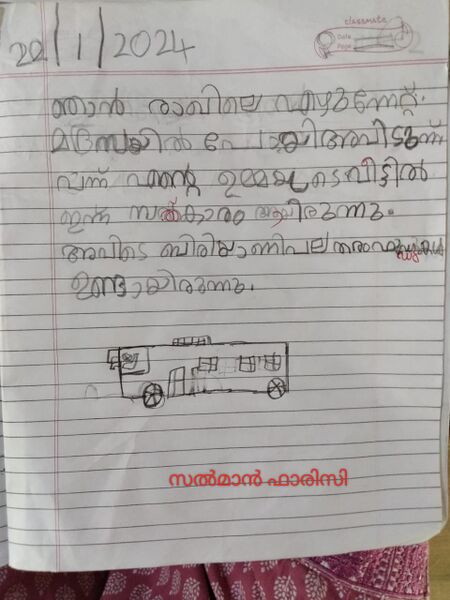 classmate
Date
Page
22/1/2024
ഞാൻ രാവിലെ എഴുന്നേറ്റ്.
മദ്രസയിൽ പോയി അവിടുന്ന്
വന്ന് എന്റെ ഉമ്മയുടെ വീട്ടിൽ
ഇന്ന് സത്കാരം ആയിരുന്നു.
അവിടെ ബിരിയാണി പലതരം
ഉണ്ടായിരുന്നു.
സൽമാൻ ഫാരിസി